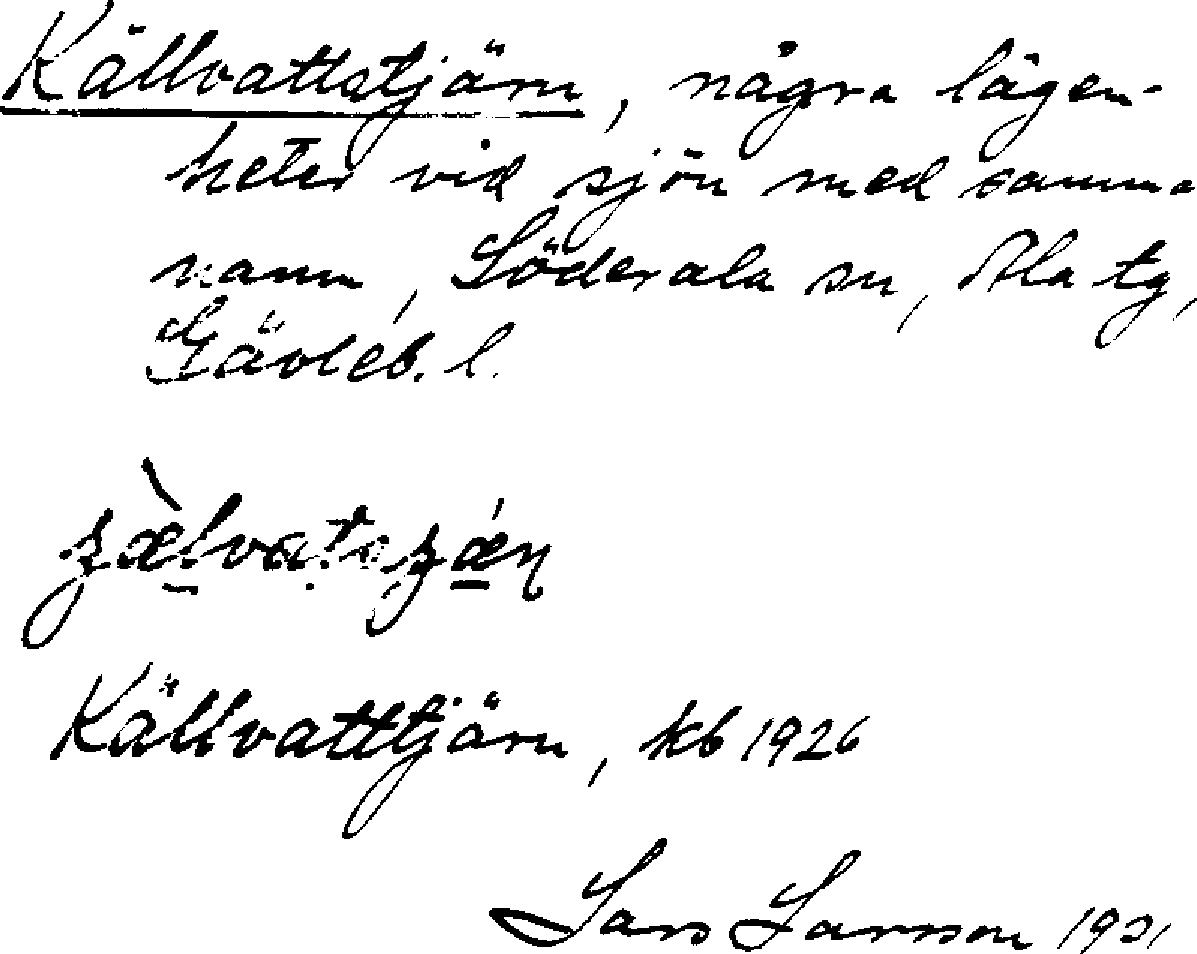 Källvattstjärn, några lägen-
heter vid sjön med samma
namn, Söderala sn, Ala tg,
Gävleb. l.
Källvatttjärn, kb 1926
Lars Larsson